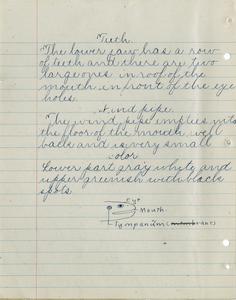 Teeth.
The lower jaw has a row
of teeth and there are two
large ones in roof of the
mouth in front of the eye
holes.
Wind pipe.
The wind pipe empties into
the floor of the mouth well
back and is very small
color
Lower part gray white and
upper greenish with black
spots.
Eye
Mouth.
Tympanum (membrane)